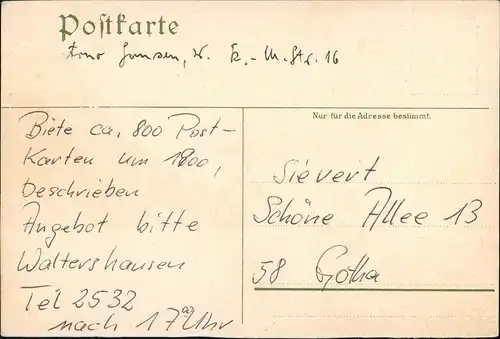 Postkarte
Arno Jansen, W. K.-M.-Str. 16
Nur für die Adresse bestimmt.
Biete ca. 800 Post-
Karten um 1900,
beschrieben
Angebot bitte
Waltershausen
Tel 2532
nach 17 00 Uhr
Sievert
Schöne Allee 13
58 Gotha